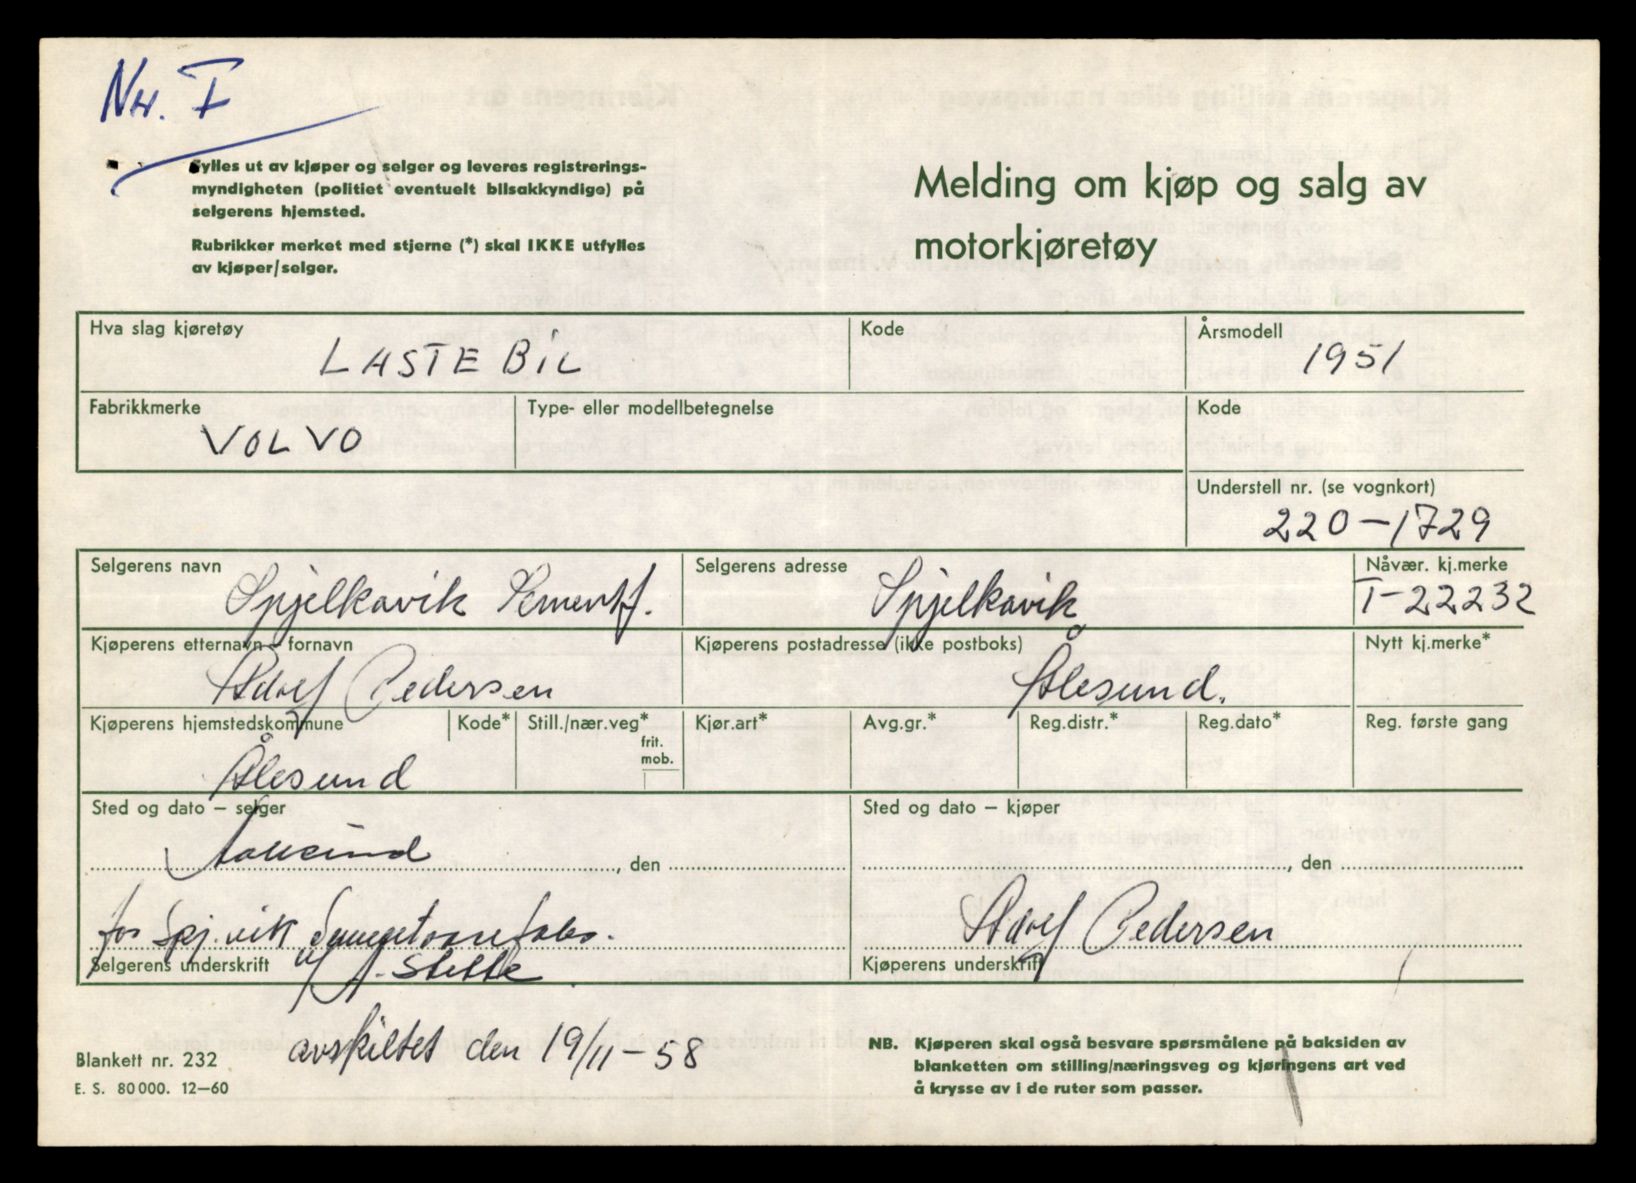 Nr. I
Fylles ut av kjøper og selger og leveres registrerings-
myndigheten (politiet eventuelt bilsakkyndige) på
selgerens hjemsted.
Rubrikker merket med stjerne (*) skal IKKE utfylles
av kjøper/selger.
Melding om kjøp og salg av
motorkjøretøy
Hva slag kjøretøy
LASTEBIL
Kode
Årsmodell
1951
Fabrikkmerke
VOLVO
Type- eller modellbetegnelse
Kode
Understell nr. (se vognkort)
220-1729
Selgerens navn
Spjelkavik Sementf.
Selgerens adresse
Spjelkavik
Nåvær. kj.merke
T-22232
Kjøperens etternavn - fornavn
Adolf Pedersen
Kjøperens postadresse (ikke postboks)
Ålesund.
Nytt kj.merke*
Kjøperens hjemstedskommune
Ålesund
Kode*
Still./nær.veg*
frit.
mob.
Kjør.art*
Avg.gr.*
Reg.distr.*
Reg.dato*
Reg. første gang
Sted og dato – selger
Aalesund, den
Sted og dato – kjøper
, den
for Spj.vik
Selgerens underskrift
Adolf Pedersen
Kjøperens underskrift
avskiltet den 19/11-58
Blankett nr. 232
E. S. 80000. 12–60
NB. Kjøperen skal også besvare spørsmålene på baksiden av
blanketten om stilling/næringsveg og kjøringens art ved
å krysse av i de ruter som passer.